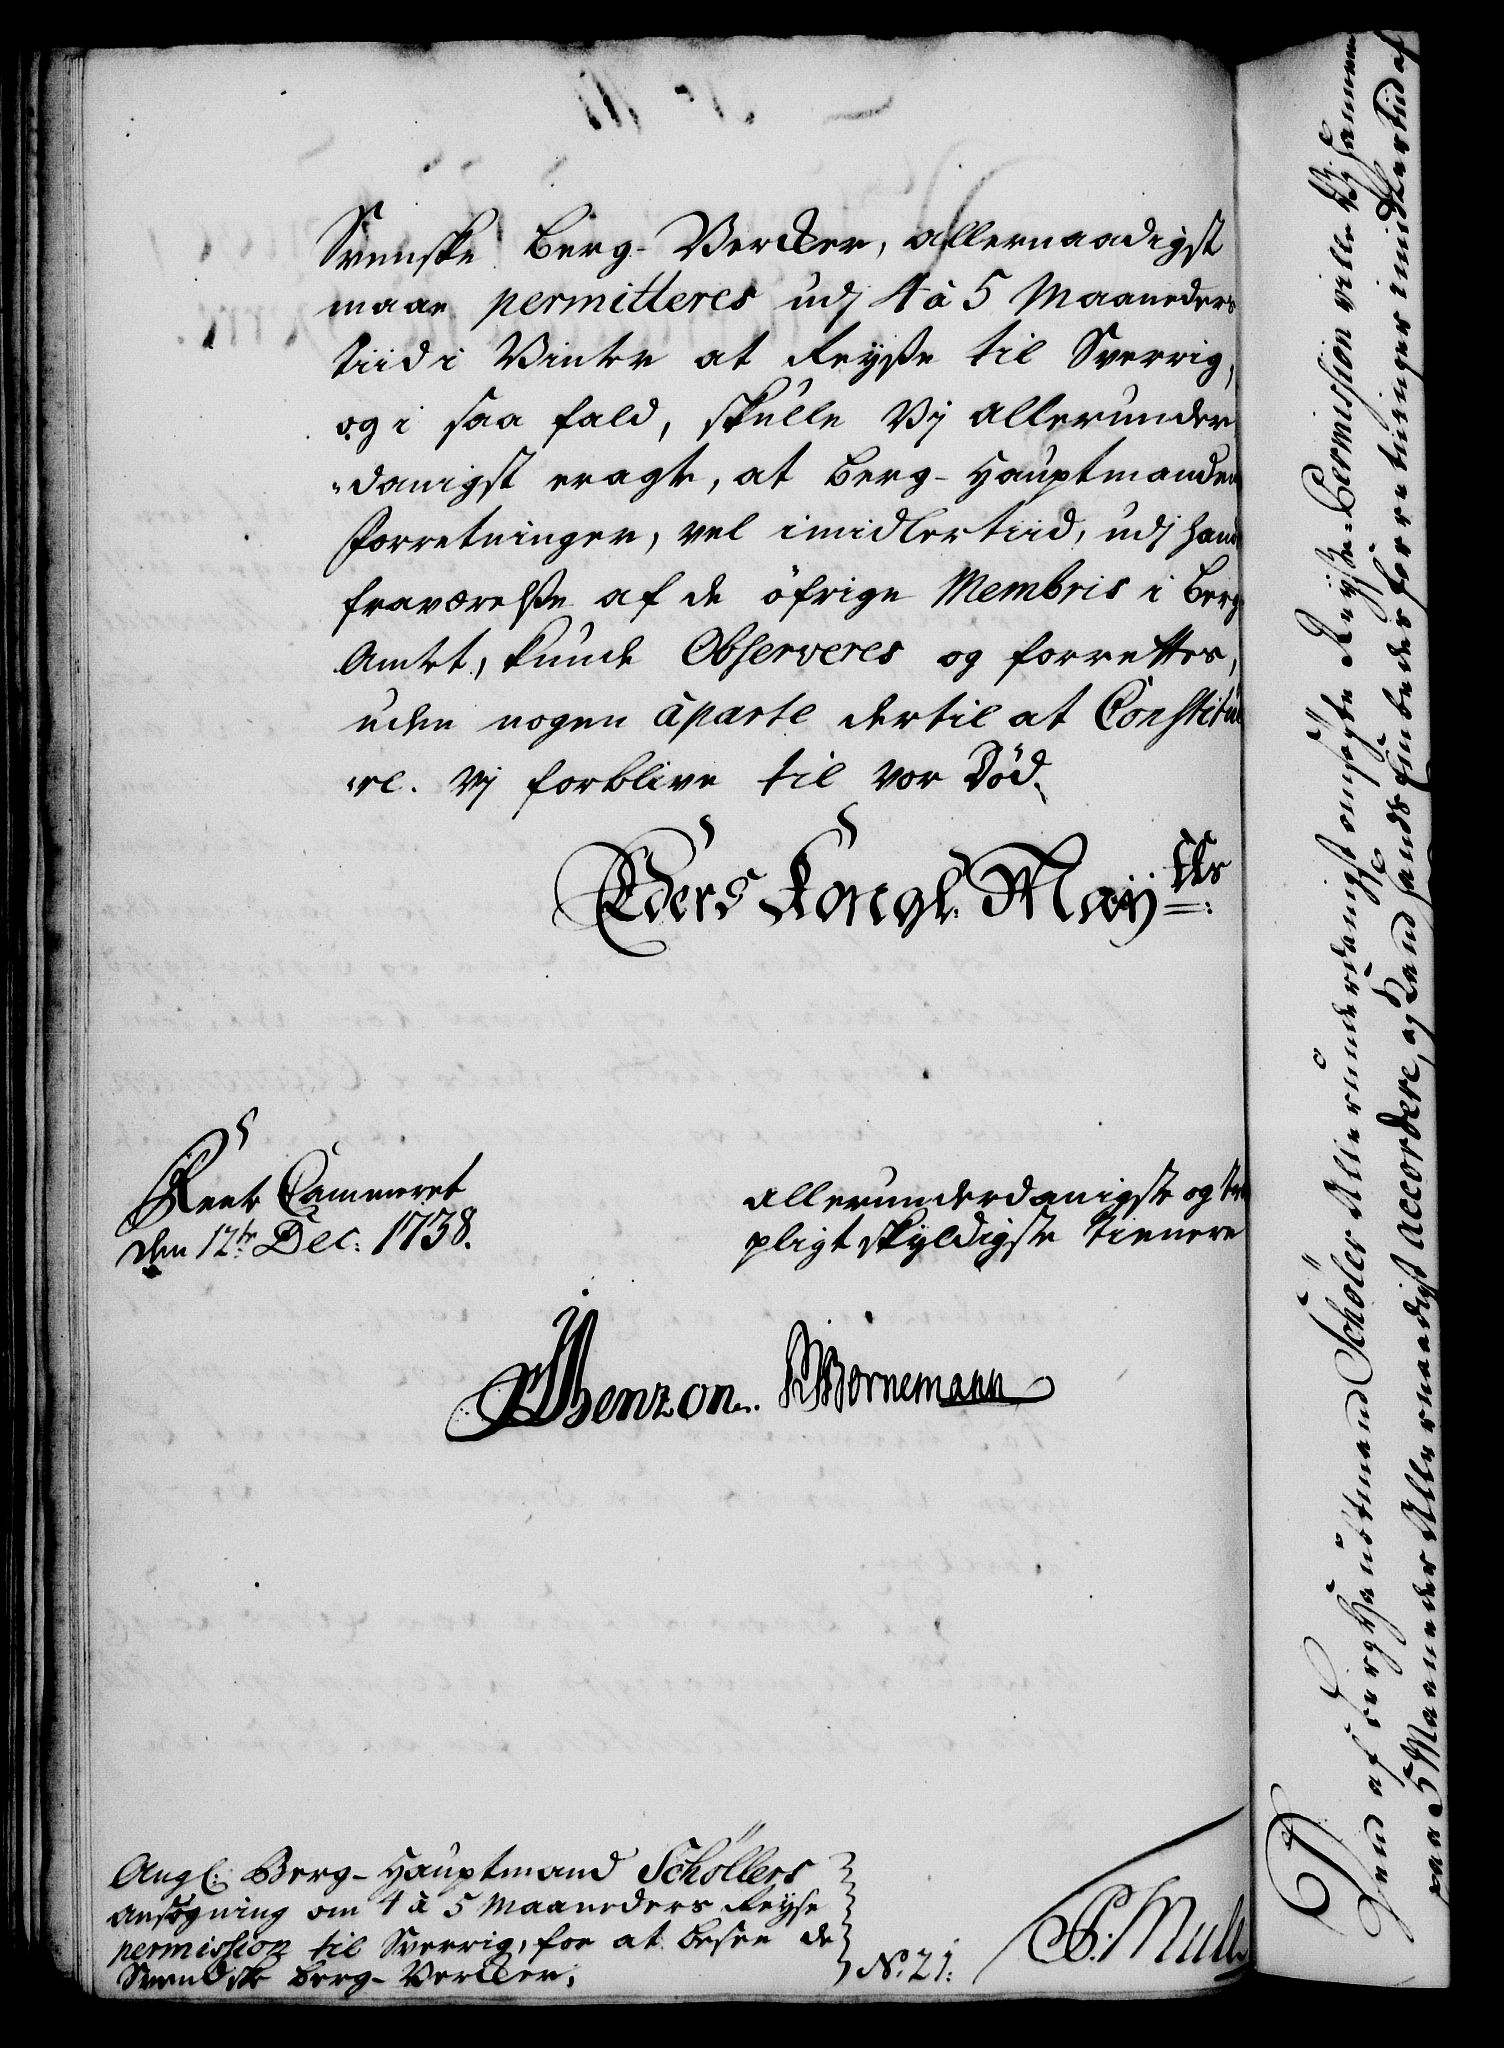 Svenske Berg-Vercker, allernaadigst
maae permitteres udj 4 à 5 Maaneders
tiid i Vinter at Reyße til Sverrig,
og i saa fald, skulle Vj allerunder
danigst eragte, at Berg-Hauptmandens
forretninger, vel imidlertiid, udj hans
fraværelße af de öfrige Membris i Berg
Amtet, kunde Observeres og forrettes,
uden nogen àparte dertil at Constitue
re. Vj forblive til vor Död.
Eders Kongl. Mayts:
Rente Cammeret
den 12te Dec: 1738.
allerunderdanigste og tro
pligtskyldigste tienere
Benzon. Bornemann
Ang: Berg-Hauptmand Schöllers
ansögning om 4 à 5 Maaneders Reyse
permission til Sverrig, for at besee de
Svendske Berg-Vercker.
No. 21.
P: Mull
Dend af Berg Hauptmand Schöler Allerunderdanigst ansögte Reyße-Permission ville Vj hannem
paa 5 Maaneder Allernaadigst accordere, og hans Embedes forretninger imidlertiid af